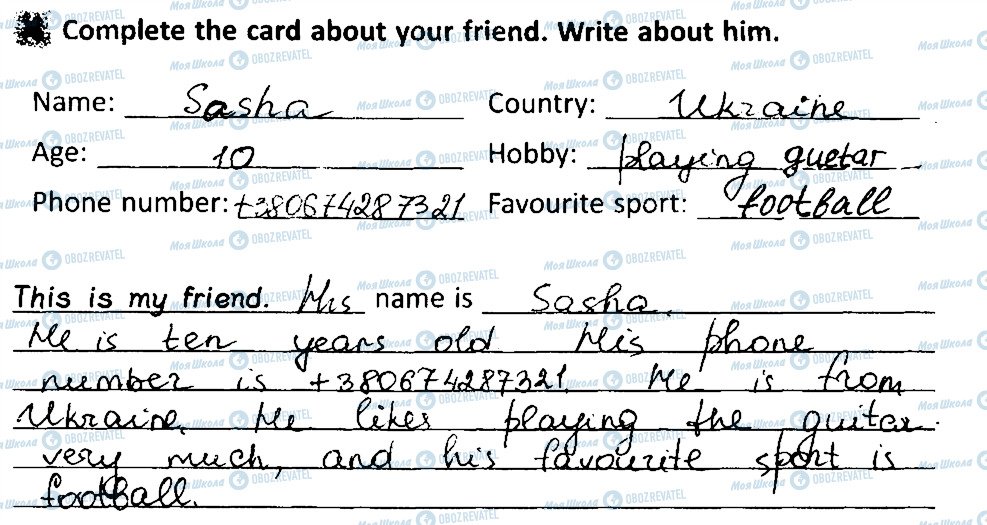 Complete the card about your friend. Write about him.
Name: Sasha Country: Ukraine
Age: 10 Hobby: playing guetar
Phone number: +380674287321 Favourite sport: football
This is my friend. His name is Sasha.
He is ten years old His phone
number is +380674287321. He is from
Ukraine. He likes playing the guitar
very much, and his favourite sport is
football.